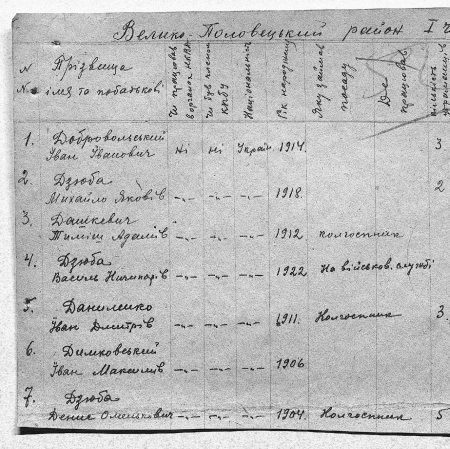 Велико-Половецький район I ч
N Прізвища
№ імя то побатькові
Чи працював
в органох НКВД
Чи був посил
КП(б)У
Національність
Рік народження
Яку займав
посаду
Де
працював
1. Добровольський
Іван Іванович ні ні Україн 1914. 3
2. Дзюба
Михайло Яковів -„- -„- -„- 1918. 2
3. Дашкевич
Тиміш Адамів -„- -„- -„- 1912 колгоспник
4. Дзюба
Василь Ничипорів -„- -„- -„- 1922 На військов. службі
5. Данименко
Іван Дмитрів -„- -„- -„- 1911. Колгоспник 3.
6. Димковський
Іван Максимів -„- -„- -„- 1906
7. Дзюба
Денис Оменькович -„- -„- -„- 1904. Колгоспник 5